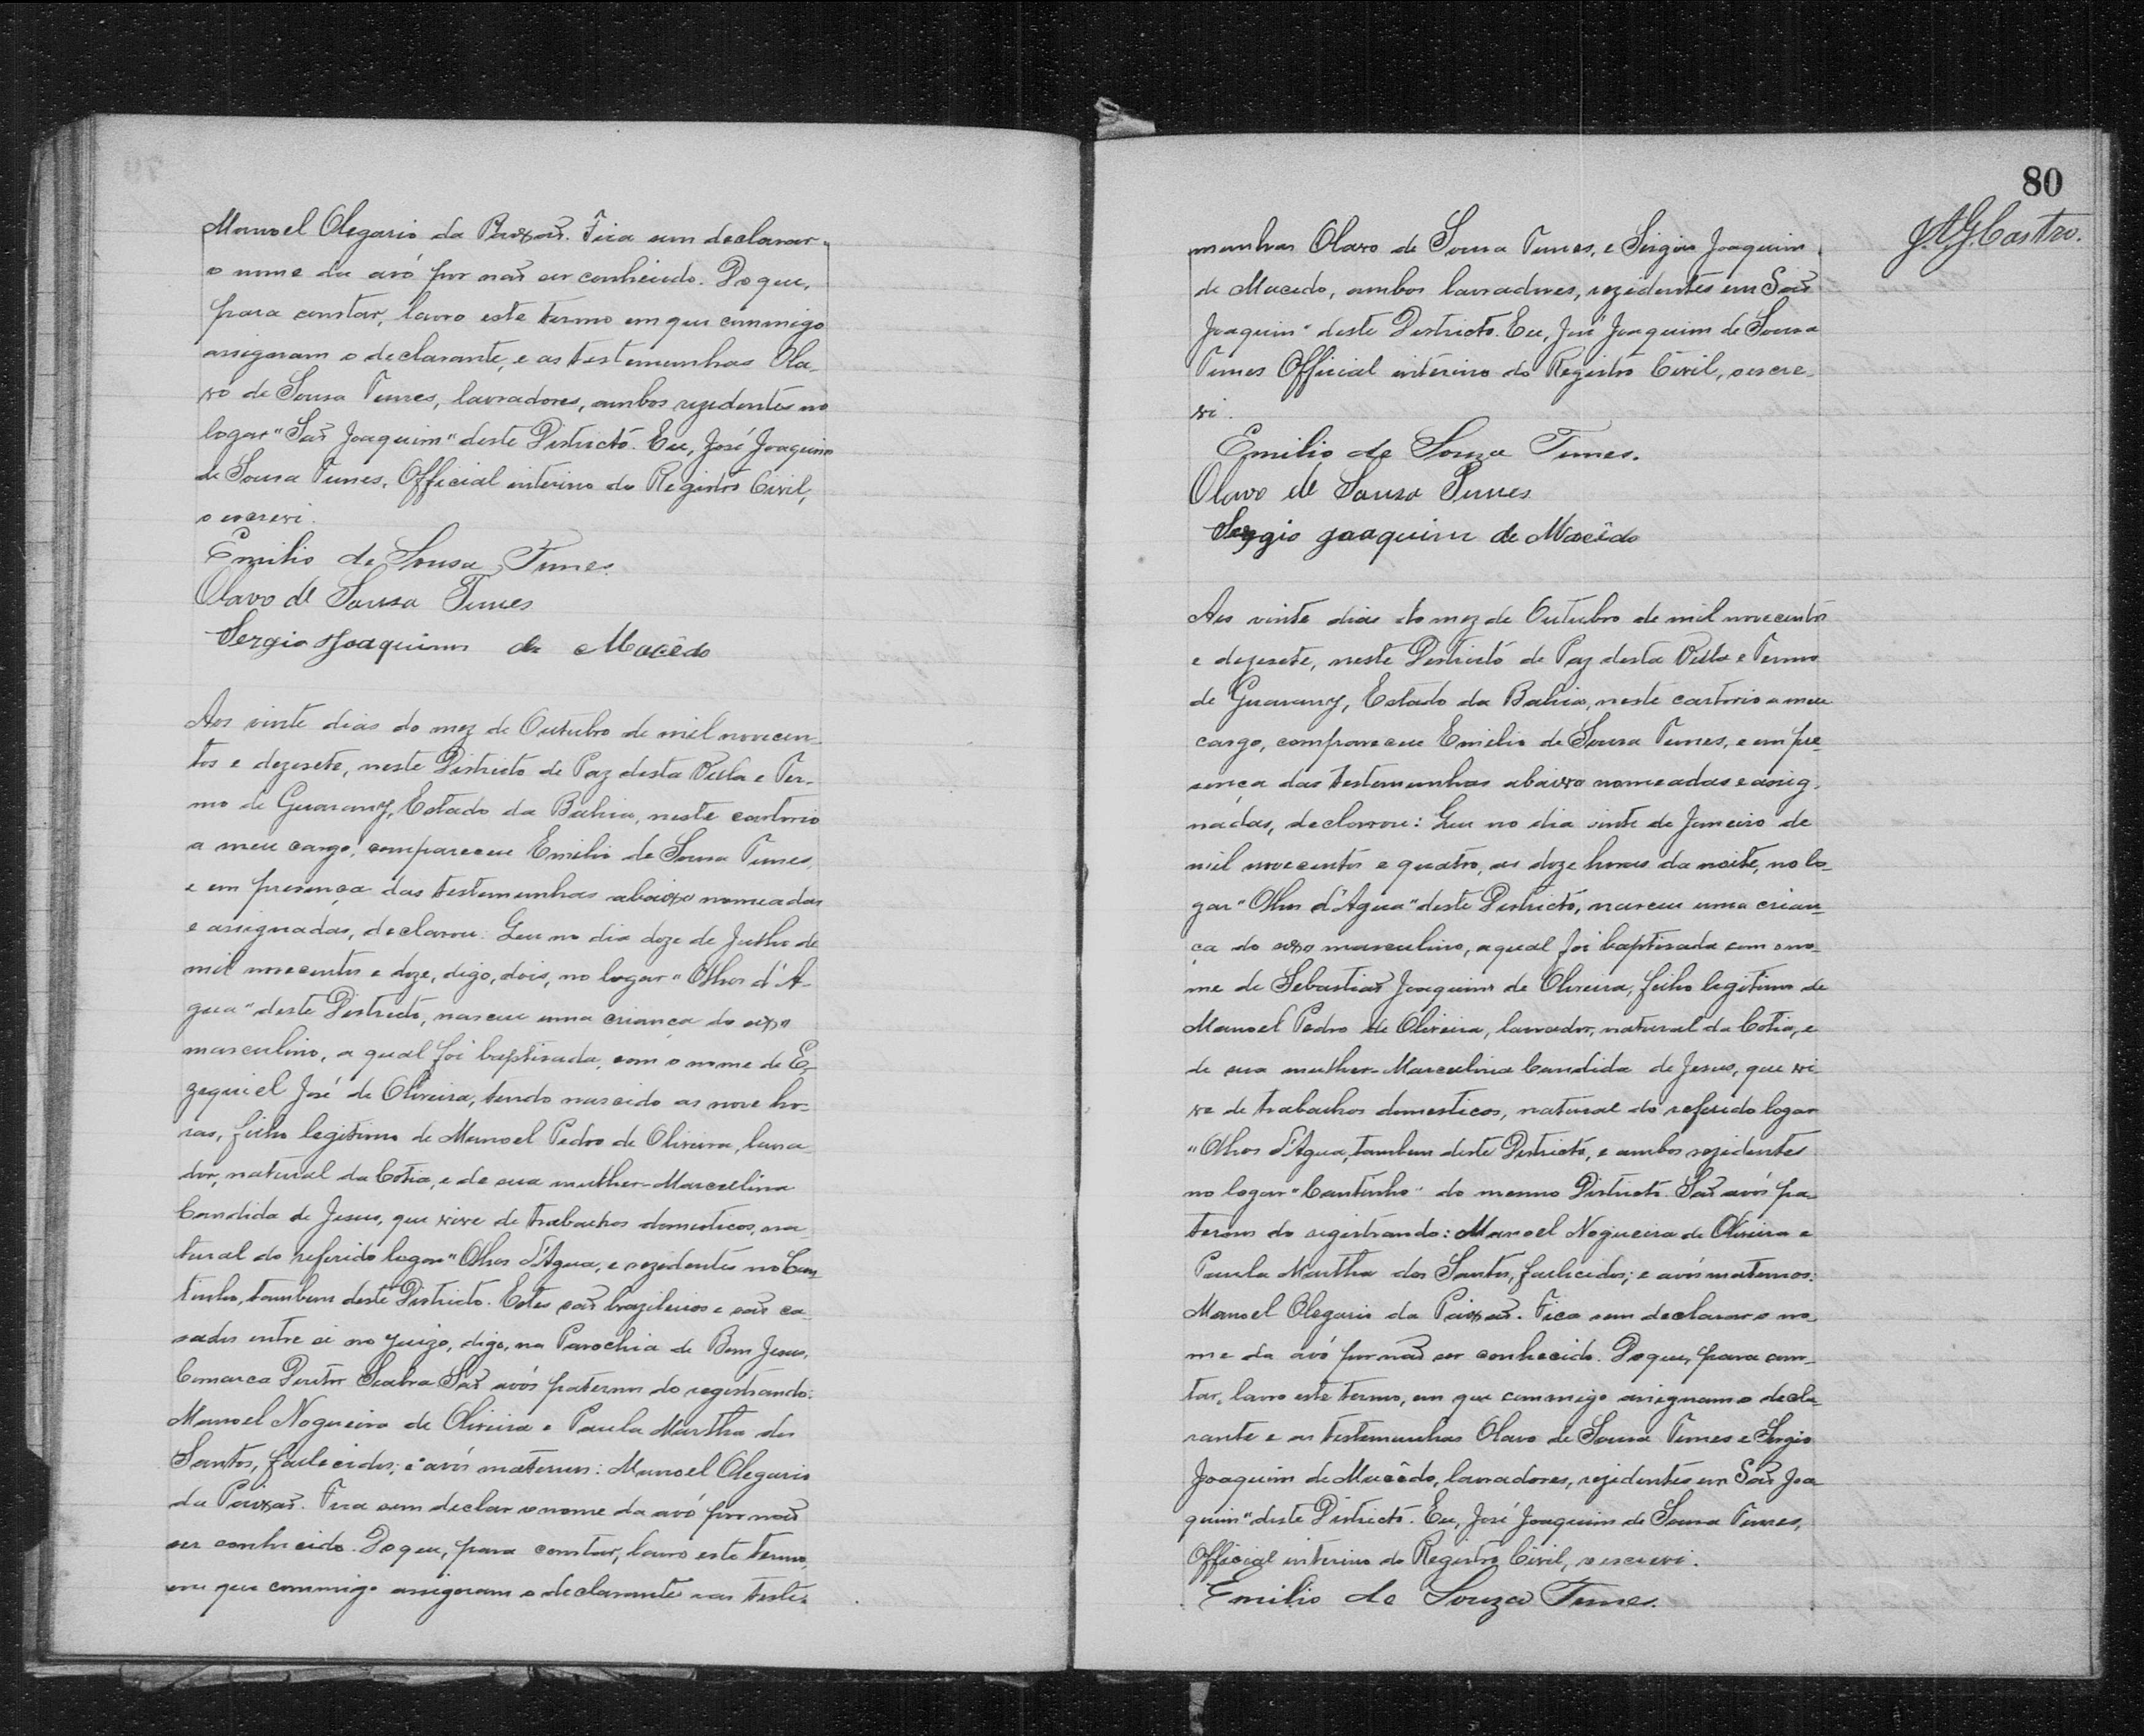 Manoel Olegario da Paixaõ. Fica sem declarar
o nome da avó por naõ ser conhecido. Do que,
para constar, lavro este termo em que commigo
assignam o declarante, e as testemunhas Ola-
vo de Sousa Tunes, lavradores, ambos rezidentes no
logar "Saõ Joaquim" deste Districto. Eu, José Joaquim
de Sousa Tunes, Official interino do Registro Civil,
o escrevi.
Emilio de Sousa Tunes.
Olavo de Sousa Tunes
Sergio Joaquim de Macêdo
Aos vinte dias do mez de Outubro de mil novecen-
tos e dezesete, neste Districto de Paz desta Villa e Ter-
mo de Guarany, Estado da Bahia, neste cartorio
a meu cargo, compareceu Emilio de Sousa Tunes,
e em presença das testemunhas abaixo nomeadas
e assignadas, declarou: Que no dia doze de Julho de
mil novecentos e doze, digo, dois, no logar "Olhos d'A-
gua" deste Districto, nasceu uma criança do sexo
masculino, a qual foi baptisada, com o nome de E-
zequiel José de Oliveira, tendo nascido as nove ho-
ras, filho legitimo de Manoel Pedro de Oliveira, lavra-
dor, natural da Cotia, e de sua mulher Marculina
Candida de Jesus, que vive de trabalhos domesticos, na-
tural do referido logar "Olhos d'Agua, e rezidentes no Can-
tinho, tambem deste Districto. Estes saõ brazileiros e saõ ca-
sados entre si no juizo, digo, na Parochia de Bom Jesus,
Comarca Doutor Seabra Saõ avós paternos do registrando:
Manoel Nogueira de Oliveira e Paula Martha dos
Santos, fallecidos; e avós maternos: Manoel Olegario
da Paixaõ. Fica sem declar o nome da avó por naõ
ser conhecido. Do que, para constar, lavro este termo,
em que commigo assignam o declarante e as teste-
80
J.A.G. Castro.
munhas Olavo de Sousa Tunes, e Sirgio Joaquim
de Macedo, ambos lavradores, rezidentes em Saõ
Joaquim" deste Districto. Eu, José Joaquim de Sousa
Tunes Official interino do Registro Civil, o escre-
vi.
Emilio de Souza Tunes.
Olavo de Sousa Tunes
Sergio Joaquim de Macêdo
Aos vinte dias do mez de Outubro de mil novecentos
e dezesete, neste Districtó de Paz desta Villa e Termo
de Guarany, Estado da Bahia, neste cartorio a meu
cargo, compareceu Emilio de Sousa Tunes, e em pre-
sença das testemunhas abaixo nomeadas e assig-
nadas, declarou: Que no dia vinte de Janeiro de
mil novecentos e quatro, as doze horas da noite, no lo-
gar "Olhos d'Agua" deste Districto, nasceu uma crian-
ça do sexo masculino, a qual foi baptisada com o no-
me de Sebastiaõ Joaquim de Oliveira, filho legitimo de
Manoel Pedro de Oliveira, lavrador, natural da Cotia, e
de sua mulher Marculina Candida de Jesus, que vi-
ve de trabalhos domesticos, natural do referido logar
"Olhos d'Agua, tambem deste Districto, e ambos rezidentes
no logar "Cantinho" do mesmo Districto. Saõ avós pa-
ternos do registrando: Manoel Nogueira de Oliveira e
Paula Martha dos Santos, fallecidos; e avós maternos:
Manoel Olegario da Paixaõ. Fica sem declarar o no-
me da avó por naõ ser conhecido. Do que, para cons-
tar, lavro este termo, em que commigo assignam o decla-
rante e as testemunhas Olavo de Sousa Tunes e Sergio
Joaquim de Macêdo, lavradores, rezidentes em Saõ Joa
quim" deste Districto. Eu, José Joaquim de Sousa Tunes,
Official interino do Registro Civil, o escrevi.
Emilio de Souza Tunes.